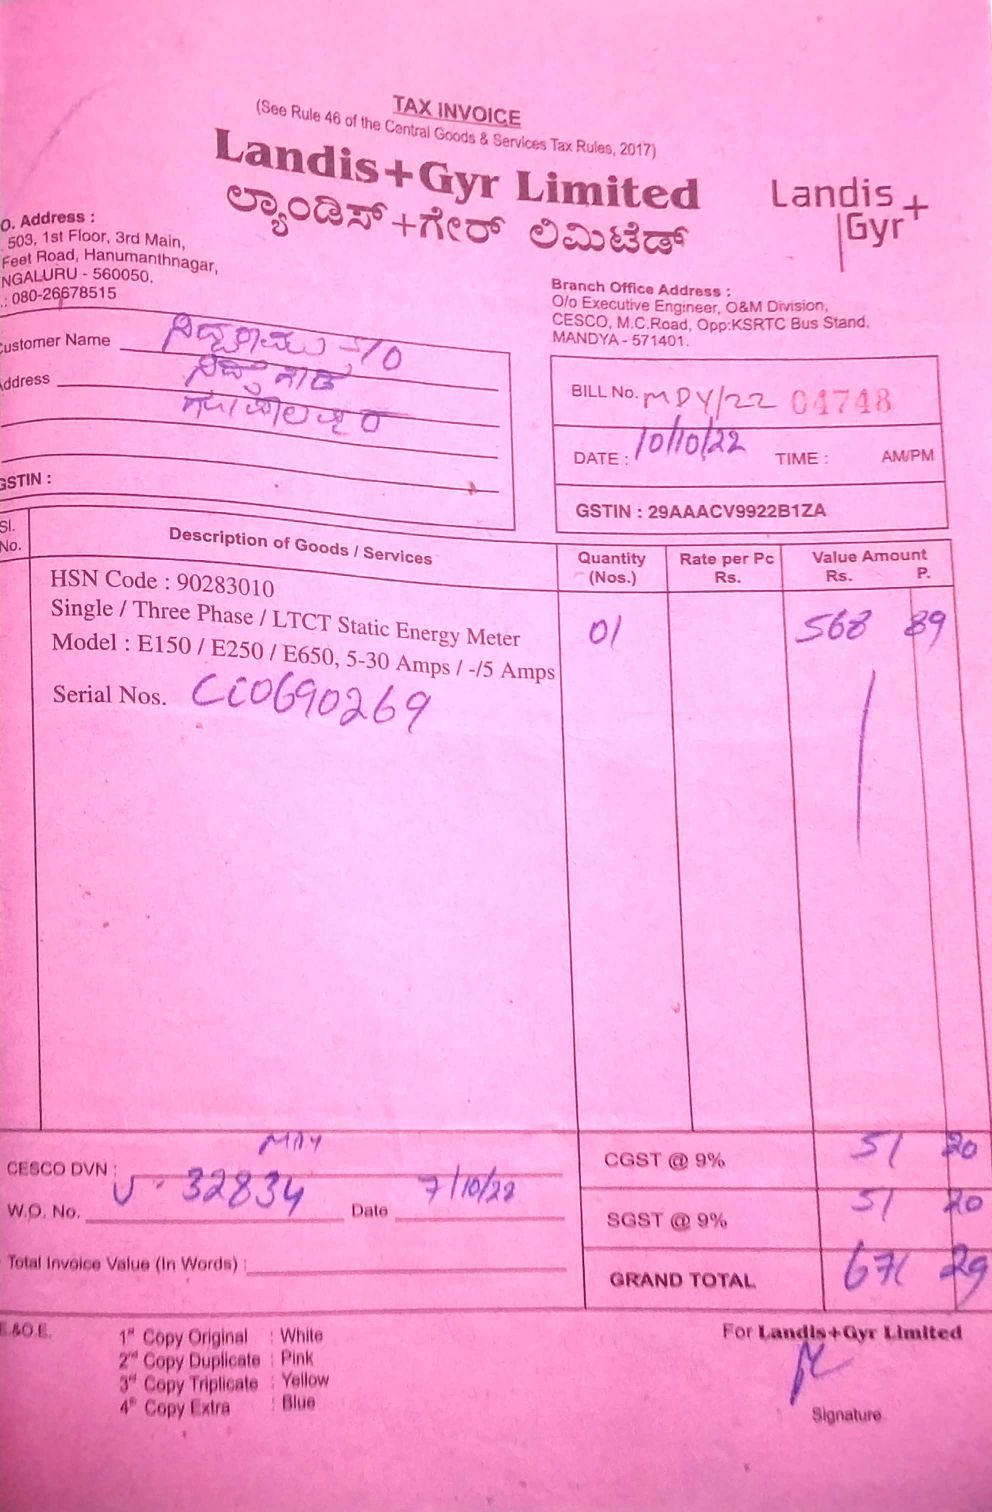 TAX INVOICE
(See Rule 46 of the Central Goods & Services Tax Rules, 2017)
Landis+Gyr Limited
ಲ್ಯಾಂಡಿಸ್+ಗೇರ್ ಲಿಮಿಟೆಡ್
Landis+
Gyr
O. Address :
503, 1st Floor, 3rd Main,
Feet Road, Hanumanthnagar,
NGALURU - 560050.
.: 080-26678515
Branch Office Address :
O/o Executive Engineer, O&M Division,
CESCO, M.C.Road, Opp:KSRTC Bus Stand.
MANDYA - 571401.
ustomer Name S/O
ddress
GSTIN :
BILL No. MDY/22 04748
DATE : 10/10/22 TIME : AM/PM
GSTIN : 29AAACV9922B1ZA
Sl. No. Description of Goods / Services Quantity (Nos.) Rate per Pc Rs. Value Amount Rs. P.
HSN Code : 90283010
Single / Three Phase / LTCT Static Energy Meter 01 568 89
Model : E150 / E250 / E650, 5-30 Amps / -/5 Amps
Serial Nos. CC0690269
CESCO DVN : MDY
W.O. No. U-32834 Date 7/10/22
Total Invoice Value (In Words) :
CGST @ 9% 51 20
SGST @ 9% 51 20
GRAND TOTAL 671 29
E.&O.E.
1st Copy Original : White
2nd Copy Duplicate : Pink
3rd Copy Triplicate : Yellow
4th Copy Extra : Blue
For Landis+Gyr Limited
Signature